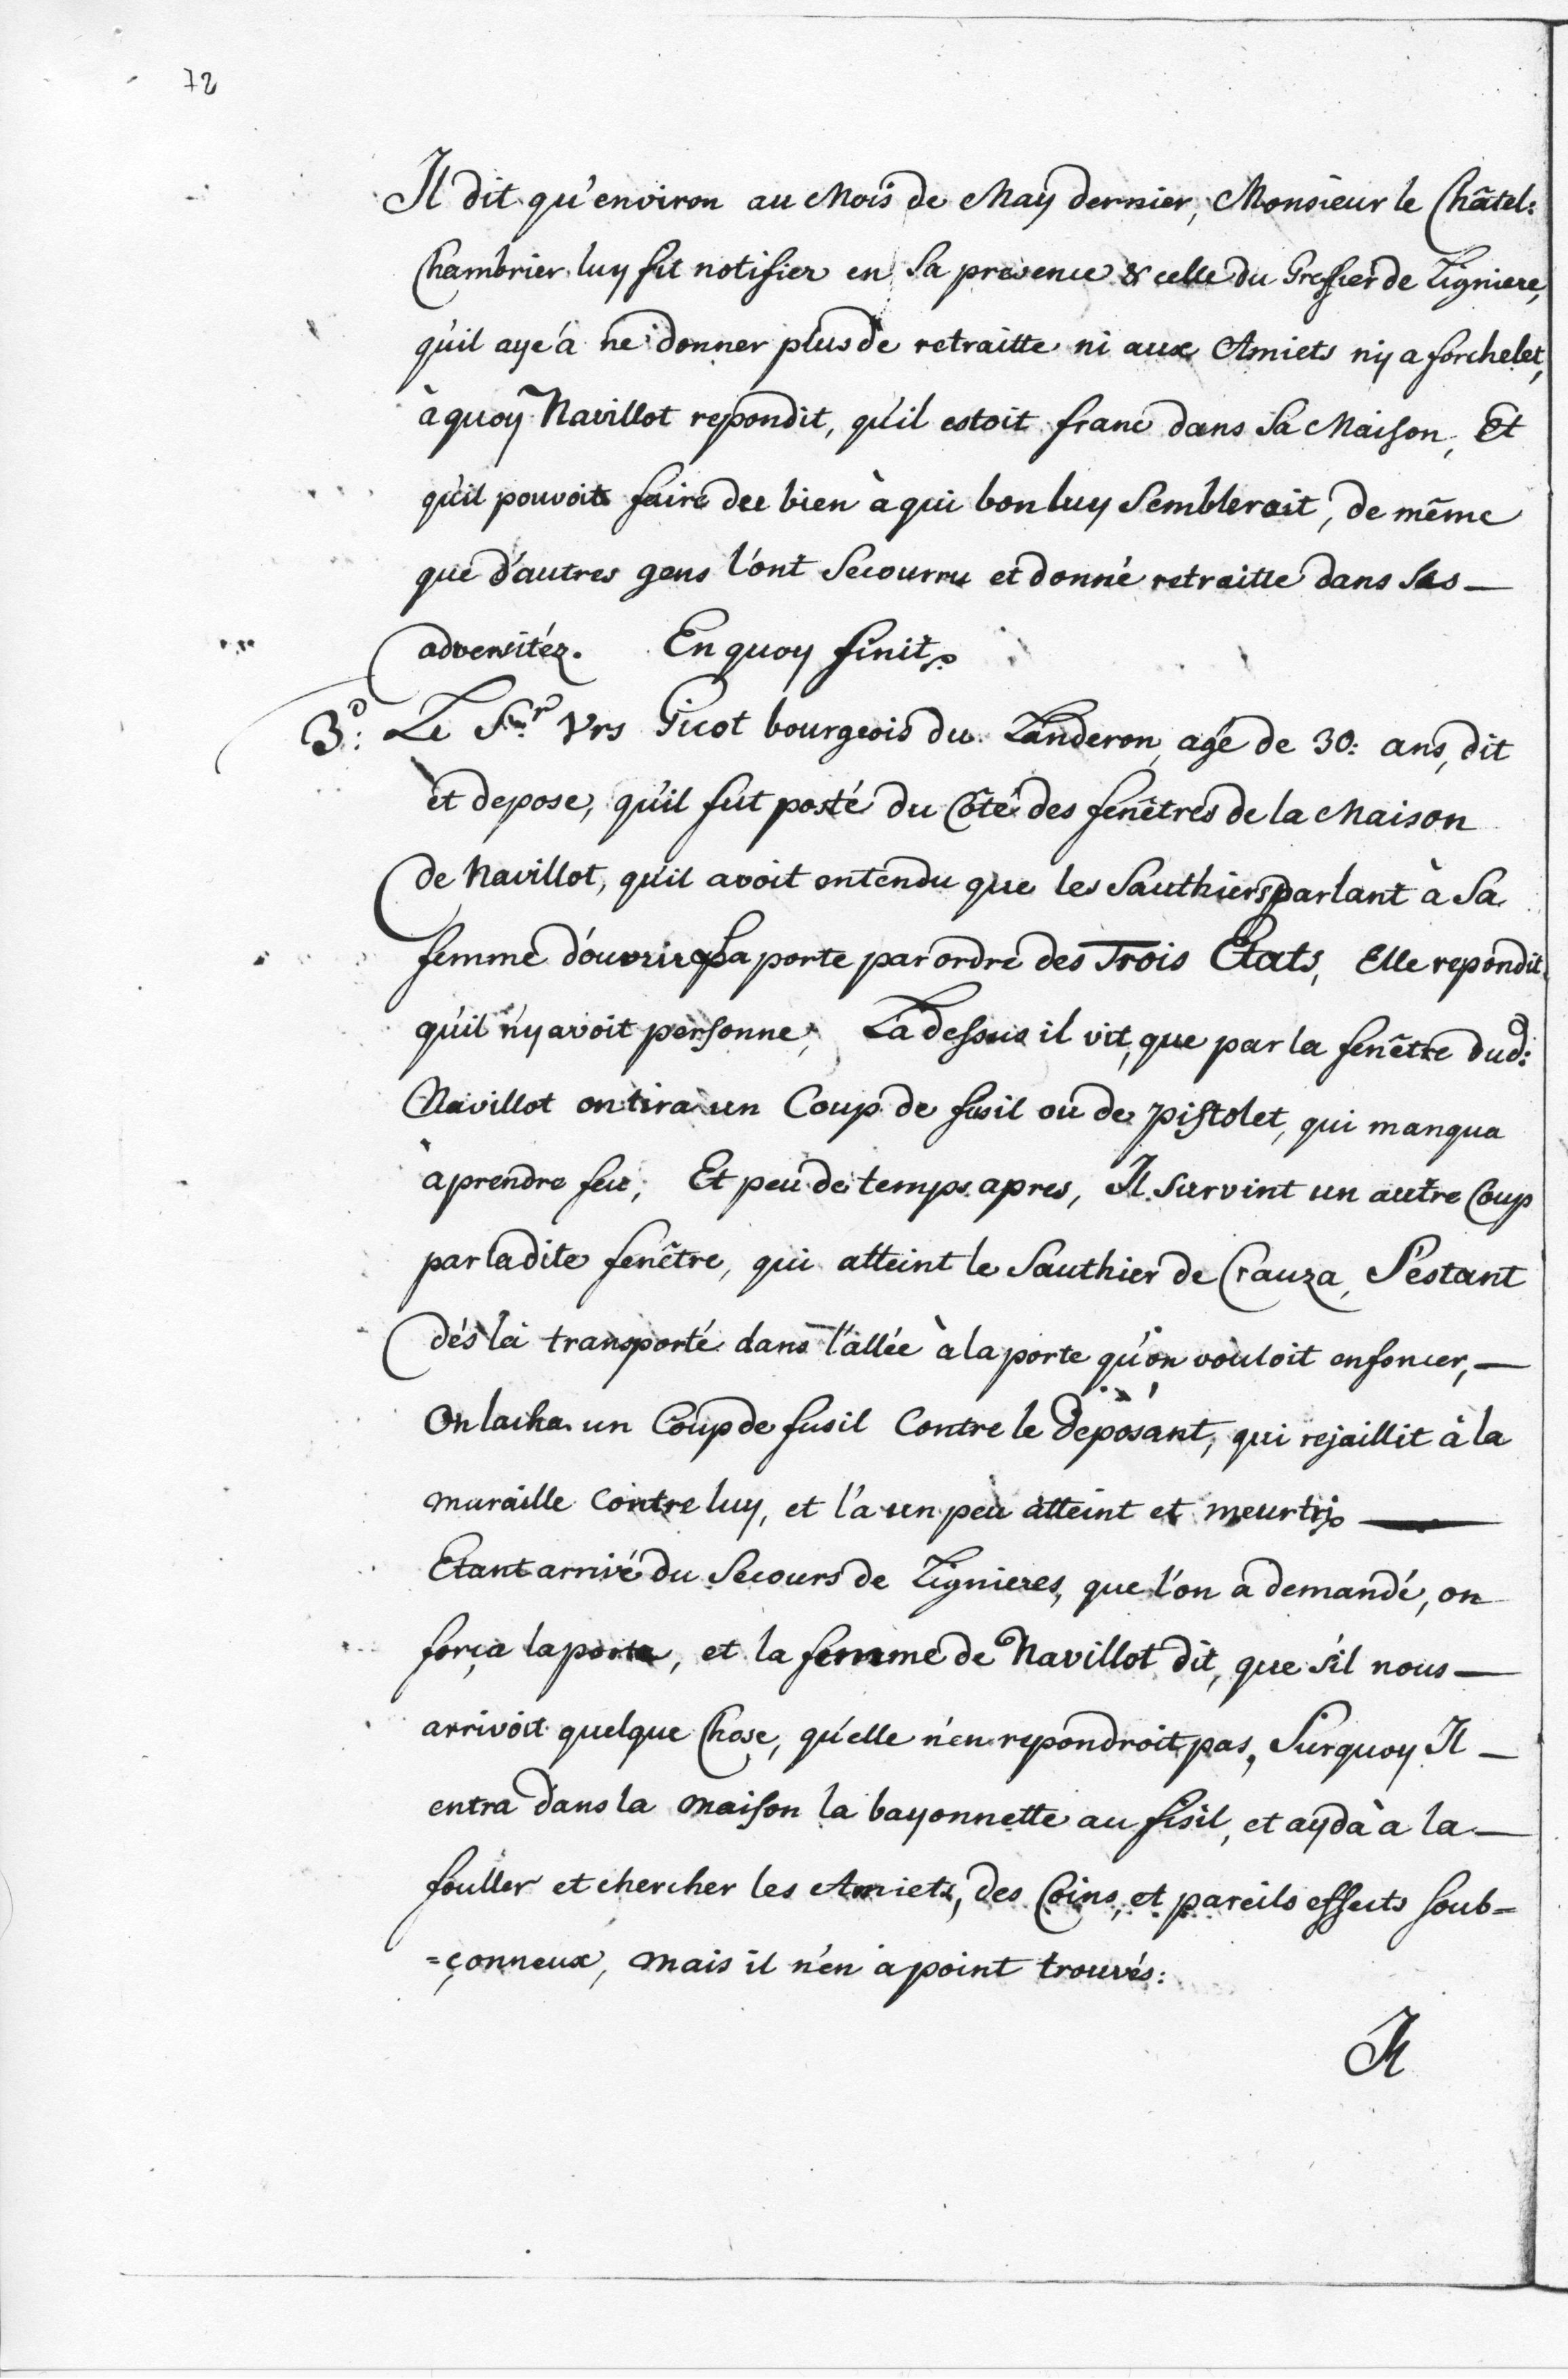 72
Il dit qu'environ au Mois de May dernier, Monsieur le Châtel:
Chambrier luy fit notifier en sa presence & celle du Greffier de Ligniere,
qu'il aye à ne donner plus de retraitte ni aux Amiets ny a forchelet,
à quoy Navillot repondit, qu'il estoit franc dans sa Maison, Et
qu'il pouvoit faire du bien à qui bon luy semblerait, de même
que d'autres gens l'ont secourru et donné retraitte dans ses
adversitéz. En quoy finit
3.º Le Sr. Vrs Gicot bourgeois du Landeron, agé de 30: ans, dit
et depose, qu'il fut posté du Côté des fenêtres de la Maison
de Navillot, qu'il avoit entendu que les Sauthiers parlant à sa
femme d'ouvrir la porte par ordre des Trois Etats, Elle repondit,
qu'il n'y avoit personne, La dessus il vit, que par la fenêtre dud:
Navillot on tira un Coup de fusil ou de pistolet, qui manqua
à prendre feu; Et peu de temps apres, Il survint un autre Coup
par ladite fenêtre, qui atteint le Sauthier de Crauza, S'estant
dés là transporté dans l'allée à la porte qu'on vouloit enfoncer,
On lacha un Coup de fusil Contre le deposant, qui rejaillit à la
muraille Contre luy, et l'a un peu atteint et meurtri
Etant arrivé du Secours de Lignieres, que l'on a demandé, on
força la porte, et la femme de Navillot dit, que s'il nous
arrivoit quelque Chose, qu'elle n'en repondroit pas, Surquoy Il
entra dans la maison la bayonnette au fisil, et ayda à la
fouller et chercher les Amiets, des Coins, et pareils effects soub=
=çonneux, mais il n'en a point trouvés:
Il